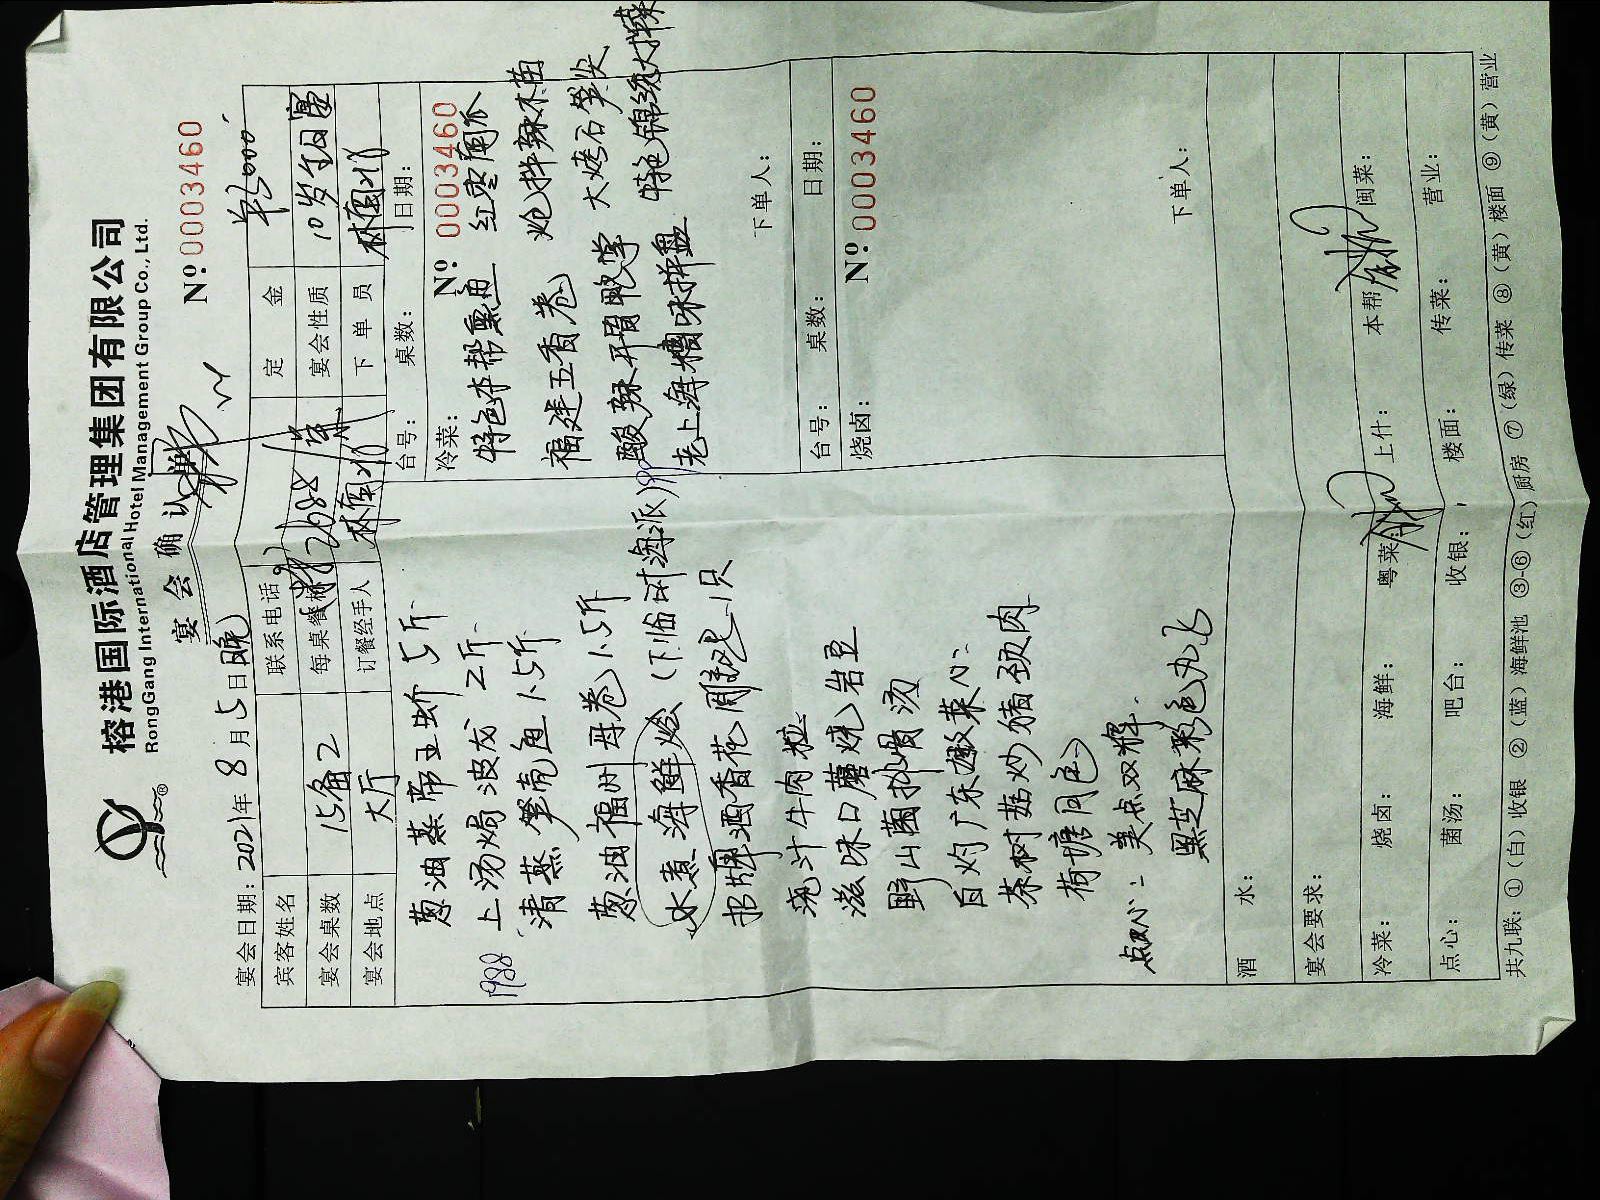 榕港国际酒店管理集团有限公司
RongGang International Hotel Management Group Co., Ltd.
宴会确认单
№:0003460
宴会日期:2021年8月5日晚
宾客姓名 联系电话 定金
宴会桌数 15备2 每桌餐标 2688 宴会性质 10岁生日宴
宴会地点 大厅 订餐经手人 下单员
葱油蒸帝王蚧 5斤
上汤焗波龙 2斤
1988
清蒸笋壳鱼 1.5斤
葱油福州母卷 1.5斤
水煮海鲜烩(下临时海派)
书牌酒香花雕 1只
浇汁牛肉粒
滋味口蘑烧岩豆
野山菌排骨汤
白灼广东菜心
茶树菇炒猪颈肉
荷塘月色
点心: 美点双辉
黑芝麻彩色
台号: 桌数: 日期:
冷菜: №0003460
特色本帮熏鱼 红枣南瓜
福建五香卷 炝拌辣木菌
酸辣开胃 大烤石笋尖
老上海糟味拼盘 特色锦绣大拌菜
下单人:
台号: 桌数: 日期:
烧卤: №:0003460
下单人:
酒水:
宴会要求:
冷菜: 烧卤: 海鲜: 粤菜: 上什: 本帮: 闽菜:
点心: 菌汤: 吧台: 收银: 楼面: 传菜: 营业:
共九联:①(白)收银 ②(蓝)海鲜池 ③-⑥(红)厨房 ⑦(绿)传菜 ⑧(黄)楼面 ⑨(黄)营业